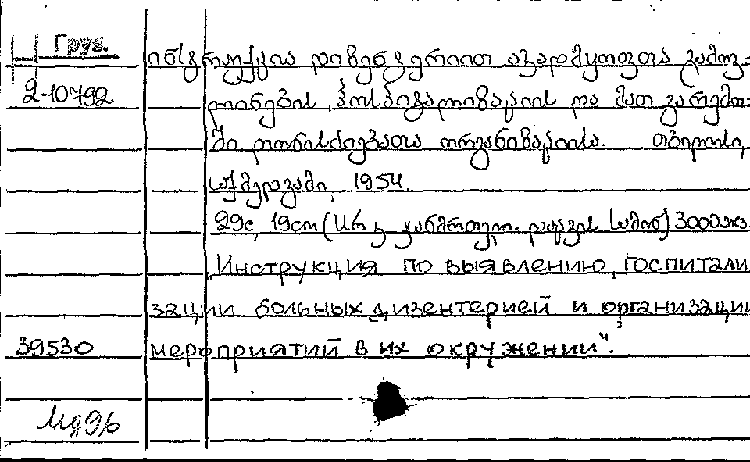 Груз.
2-10792
ინსტრუქცია დიზენტერიით ავადმყოფთა გამოვ-
ლინების, ჰოსპიტალიზაციის და მათ გარემო-
ში ღონისძიებათა ორგანიზაციისა. თბილისი,
საქმედგამი, 1954.
29с, 19см (სსრ კ ჯანმრთელ. დაცვის სამინ) 3000экз.
„Инструкция по выявлению, госпитали
зации больных дизентерией и организации
39530 мероприятий в их окружении“.